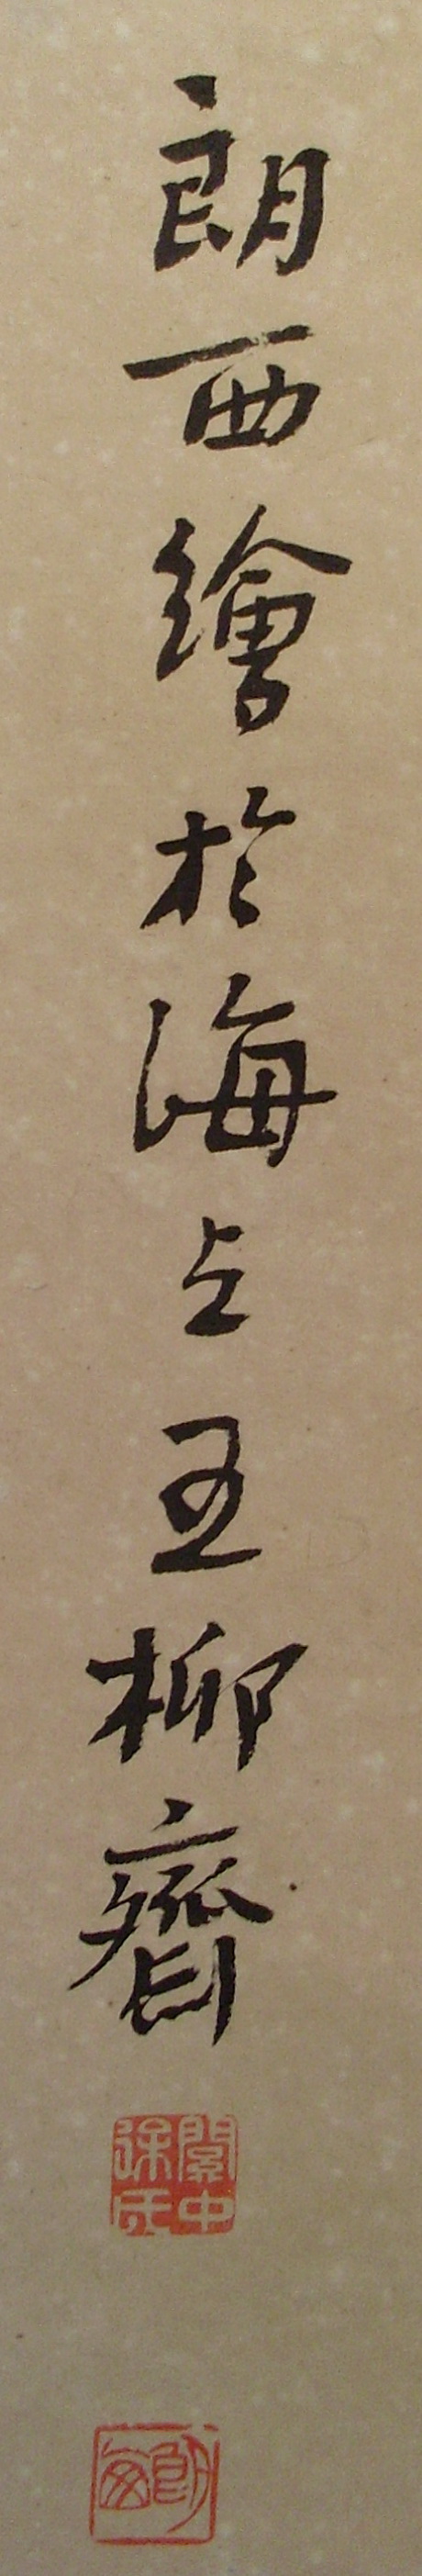 朗西繪於海上五柳齋
閬中徐氏
朗西